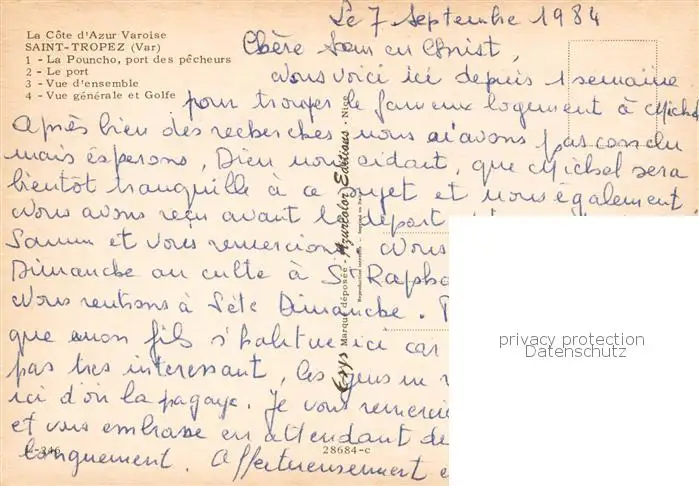 La Côte d'Azur Varoise
SAINT-TROPEZ (Var)
1 - La Pouncho, port des pêcheurs
2 - Le port
3 - Vue d'ensemble
4 - Vue générale et Golfe
Le 7 Septembre 1984
Chère Sœur en Christ,
Nous voici ici depuis 1 semaine
pour trouver le fameux logement à Michel
Après bien des recherches nous n'avons pas conclu
mais espérons, Dieu nous aidant, que Michel sera
bientôt tranquille à ce sujet et nous également
Nous avons reçu avant le départ
et vous remercions. Nous
Dimanche au culte à St Rapha
Nous rentrons à Sète Dimanche.
que mon fils s'habitue ici car
pas très intéressant, les gens
ici d'où la pagaye. Je vous remercie
et vous embrasse en attendant de
longuement. Affectueusement
Erys Marque déposée - Azurcolor Editions - Nice
28684-c
privacy protection
Datenschutz